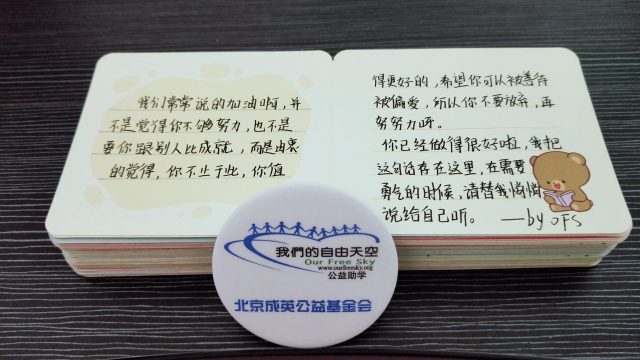 我们常常说的加油啊,并
不是觉得你不够努力,也不是
要你跟别人比成就,而是由衷
的觉得,你不止于此,你值
得更好的,希望你可以被善待
被偏爱,所以你不要放弃,再
努努力呀。
你已经做得很好啦,我把
这句话存在这里,在需要
勇气的时候,请替我悄悄
说给自己听。 ——by OFS
我們的自由天空
Our Free Sky
www.ourfreesky.org
公益助学
北京成英公益基金会